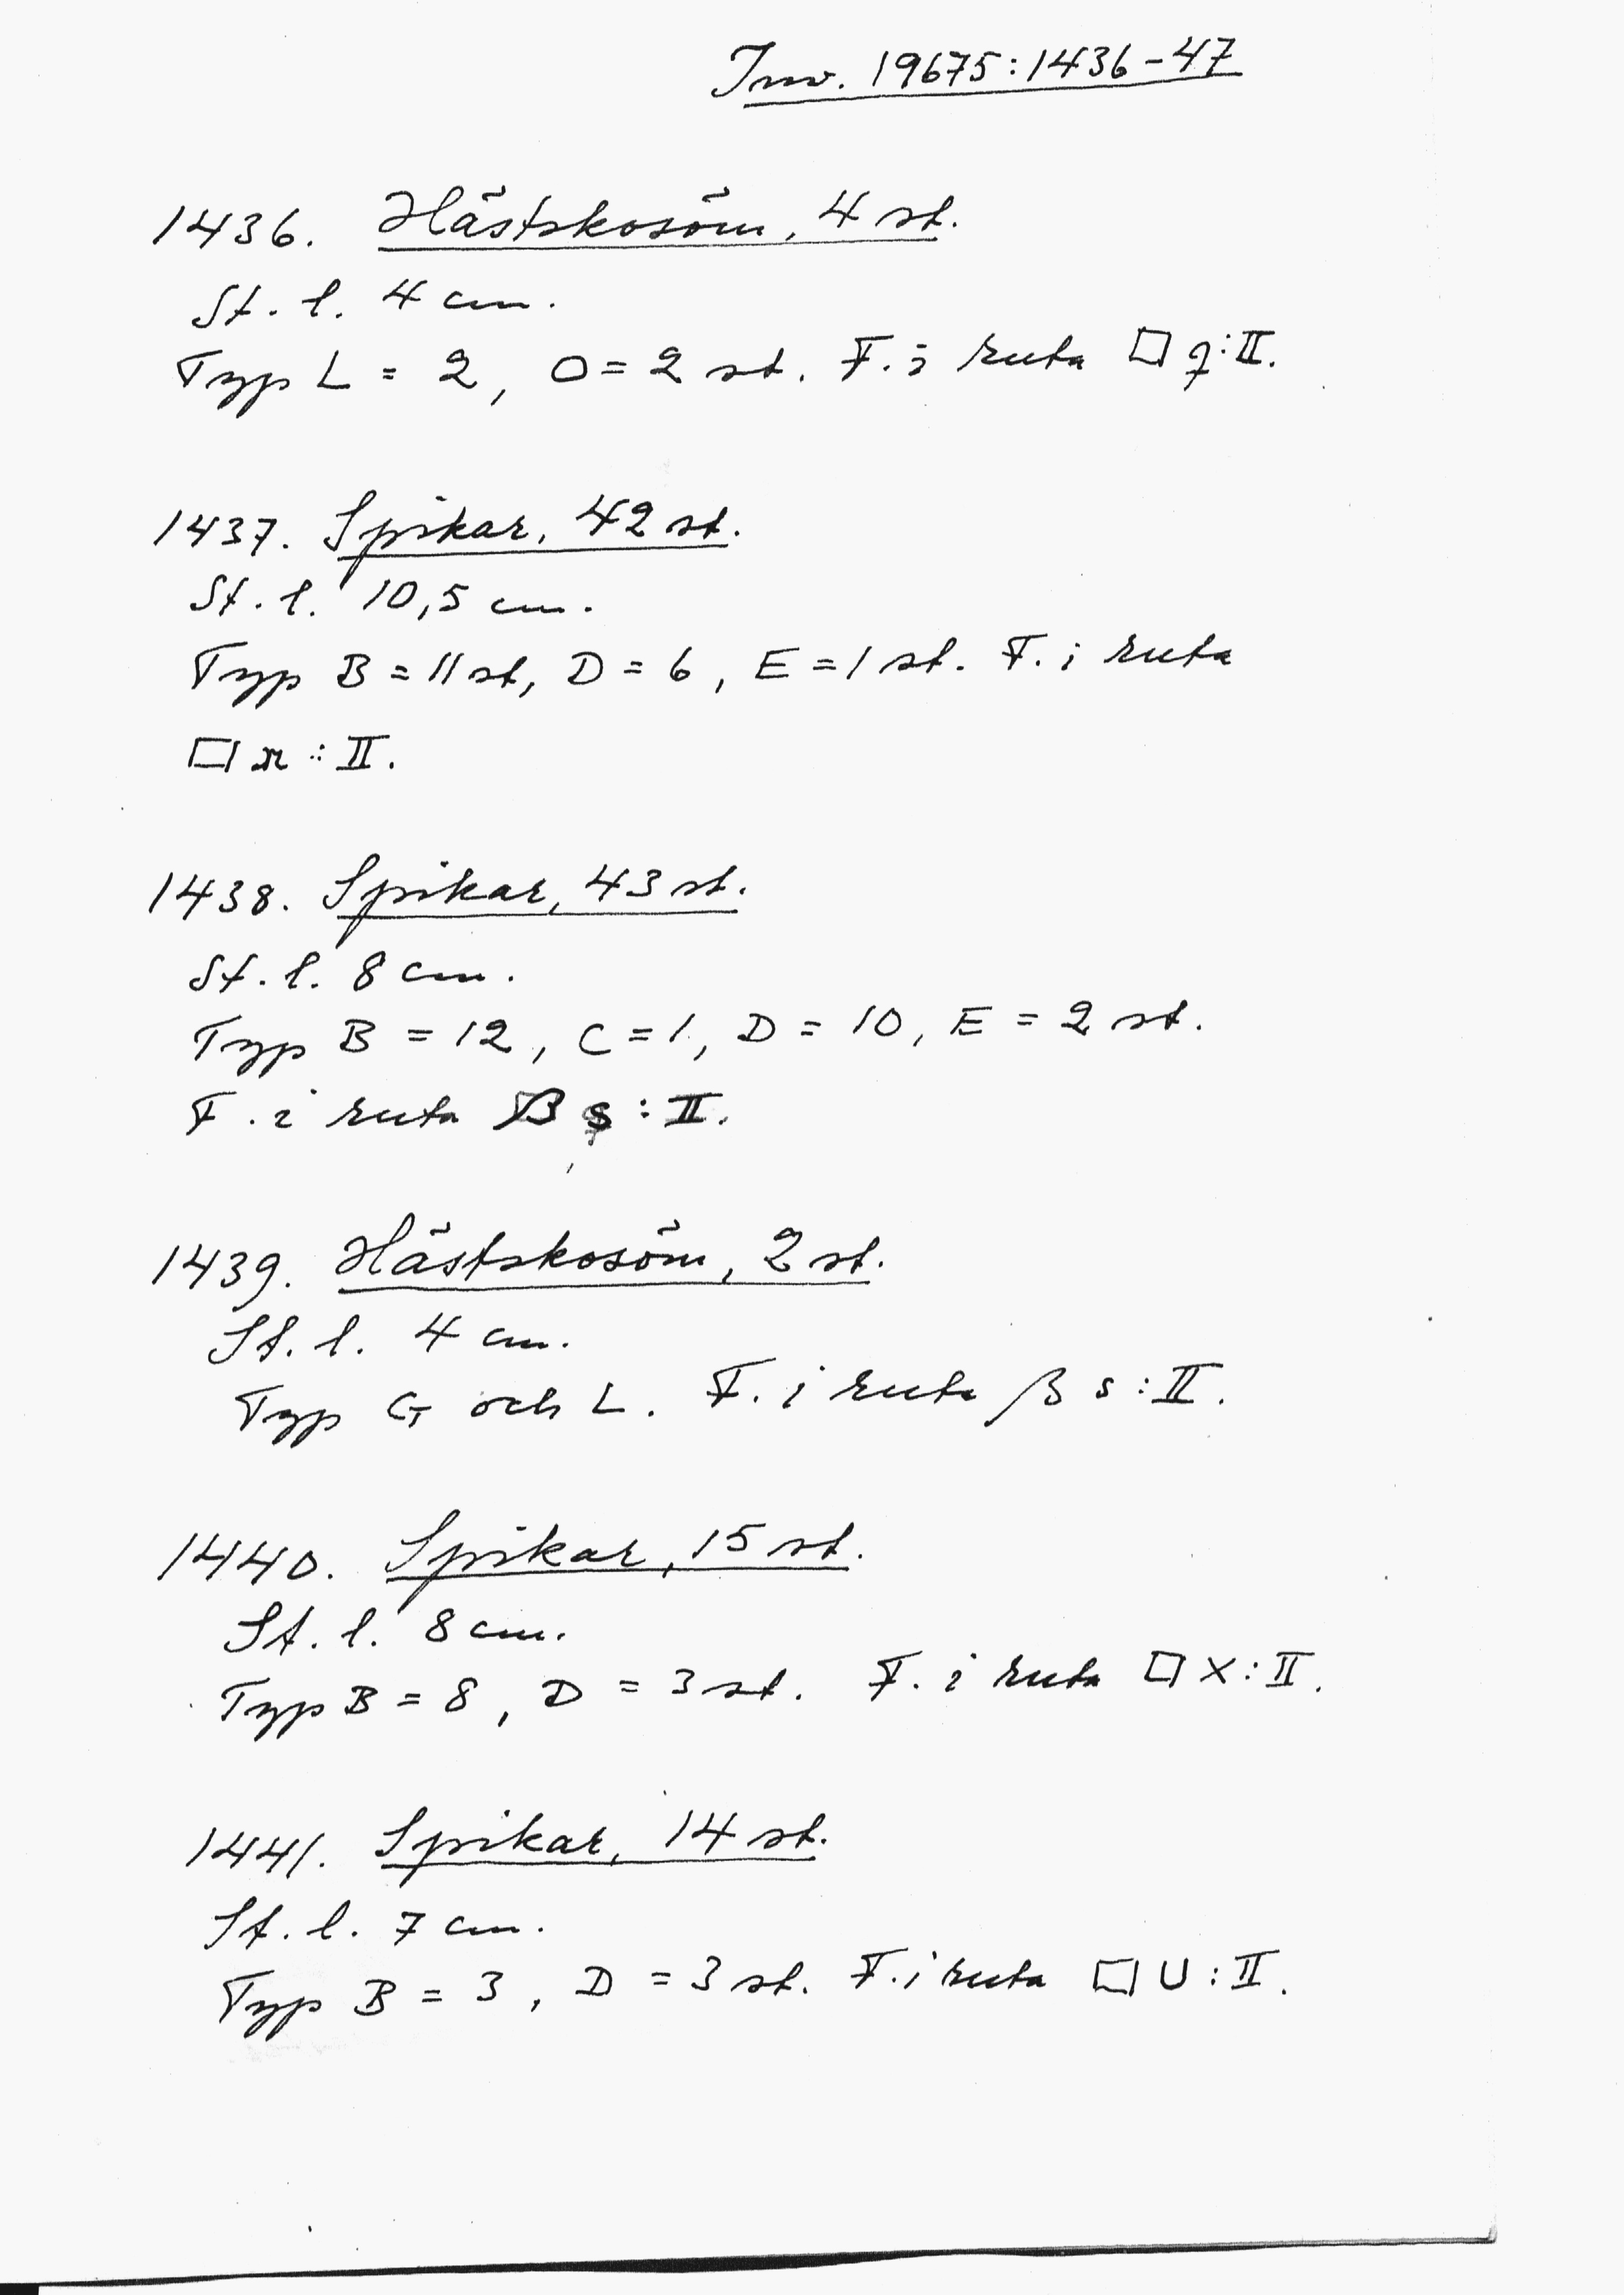 Inv. 19675:1436-47
1436. Hästskosöm, 4 st.
St. l. 4 cm.
Typ L = 2, O = 2 st. F. i ruta □ q:II.
1437. Spikar, 42 st.
St. l. 10,5 cm.
Typ B = 11 st, D = 6, E = 1 st. F. i ruta
□ r:II.
1438. Spikar, 43 st.
St. l. 8 cm.
Typ B = 12, C = 1, D = 10, E = 2 st.
F. i ruta β s:II.
1439. Hästskosöm, 2 st.
St. l. 4 cm.
Typ G och L. F. i ruta β s:II.
1440. Spikar, 15 st.
St. l. 8 cm.
Typ B = 8, D = 3 st. F. i ruta □ X:II.
1441. Spikar, 14 st.
St. l. 7 cm.
Typ B = 3, D = 3 st. F. i ruta □ U:II.